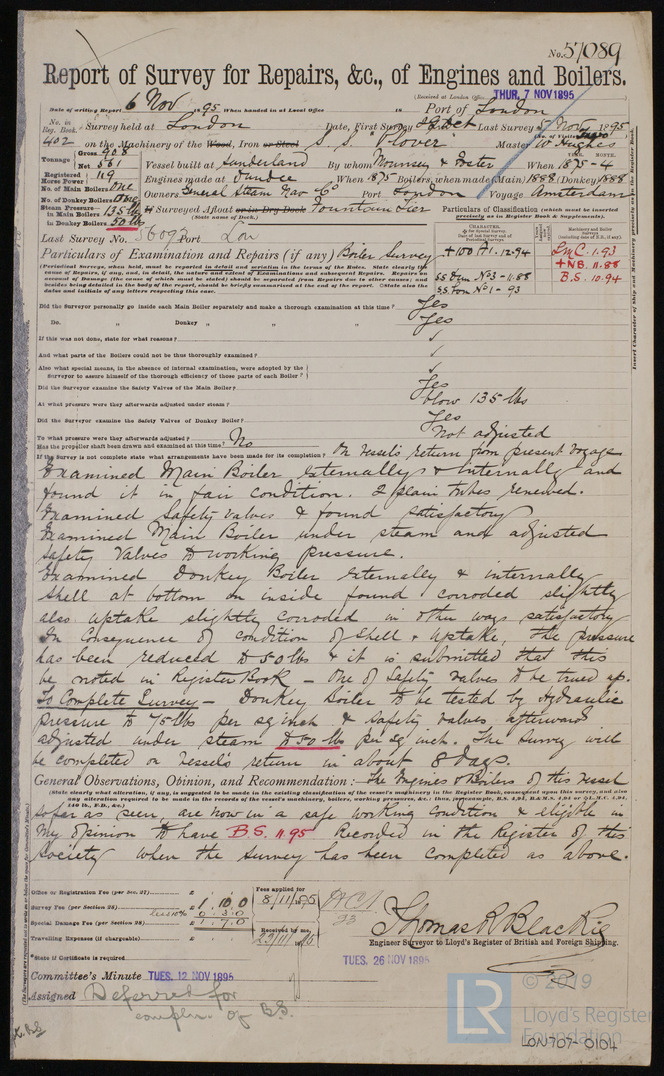 No. 57089
Report of Survey for Repairs, &c., of Engines and Boilers.
(Received at London Office THUR, 7 NOV 1895
Date of writing Report 6 Nov 1895 When handed in at Local Office 18 Port of London
No. in Reg. Book. 402 Survey held at London Date, First Survey Octr Last Survey 5 Nov 1895
on the Machinery of the Wood, Iron or Steel S. S. "Plover" Master W Hughes
Tonnage Gross 908 Net 561
Vessel built at Sunderland By whom Mounsey & Foster When 1875-4
Registered Horse Power 119
Engines made at Dundee When 1875 Boilers, when made (Main) 1888 (Donkey) 1888
No. of Main Boilers One
No. of Donkey Boilers One
Owners General Steam Nav Co Port London Voyage Amsterdam
Steam Pressure in Main Boilers 135 lbs
in Donkey Boilers 50 lbs
If Surveyed Afloat or in Dry Dock Fountain Tier
(State name of Dock.)
Particulars of Classification (which must be inserted precisely as in Register Book & Supplements).
Last Survey No. 56092 Port Lon
Particulars of Examination and Repairs (if any) Boiler Survey
+100 A1. 12.94
SS Lon No3-11.88
SS Lon No1-93
LMC. 1.93
+NB. 11.88
B.S. 10.94
Did the Surveyor personally go inside each Main Boiler separately and make a thorough examination at this time? Yes
Do. Donkey " " " " Yes
If this was not done, state for what reasons?
And what parts of the Boilers could not be thoroughly examined?
Also what special means, in the absence of internal examination, were adopted by the Surveyor to assure himself of the thorough efficiency of those parts of each Boiler?
Did the Surveyor examine the Safety Valves of the Main Boiler? Yes
At what pressure were they afterwards adjusted under steam? blow 135 lbs
Did the Surveyor examine the Safety Valves of Donkey Boiler? Yes
To what pressure were they afterwards adjusted? Not adjusted
Has the propeller shaft been drawn and examined at this time? No
If the Survey is not complete state what arrangements have been made for its completion? On vessels return from present voyage
Examined Main Boiler externally & internally and
found it in fair condition. 2 plain tubes renewed.
Examined Safety valves & found satisfactory
Examined Main Boiler under steam and adjusted
Safety Valves to working pressure.
Examined Donkey Boiler externally & internally
Shell at bottom on inside found corroded slightly
also uptake slightly corroded in other ways satisfactory
In Consequence of condition of Shell & Uptake, the pressure
has been reduced to 50 lbs & it is submitted that this
be noted in Register Book - One of Safety valves to be trued up.
To Complete Survey - Donkey Boiler to be tested by Hydraulic
pressure to 75 lbs per sq inch & safety valves afterward
adjusted under steam to 50 lbs per sq inch. The survey will
be completed on vessels return in about 8 days.
General Observations, Opinion, and Recommendation:- The Engines & Boilers of this vessel
(State clearly what alteration, if any, is suggested to be made in the existing classification of the vessel's machinery in the Register Book, consequent upon this survey, and also
any alteration required to be made in the records of the vessel's machinery, boilers, working pressures, &c.;
so far as seen, are now in a safe working condition & eligible in
my opinion to have B.S. 11 95 Recorded in the Register of this
Society when the survey has been completed as above.
Office or Registration Fee (per Sec. 27) £
Survey Fee (per Section 28) £ 1.10.0
less 10% 0.3.0
Special Damage Fee (per Section 28) £ 1.7.0
Travelling Expenses (if chargeable) £
Fees applied for 8/11/1895
Received by me, 23/11/1895
Thomas R Blackie
Engineer Surveyor to Lloyd's Register of British and Foreign Shipping.
*State if Certificate is required
TUES, 26 NOV 1895
Committee's Minute TUES, 12 NOV 1895
Assigned Deferred for
compln. of B.S.
© 2019
LR Lloyd's Register
Foundation
LON-707-0104